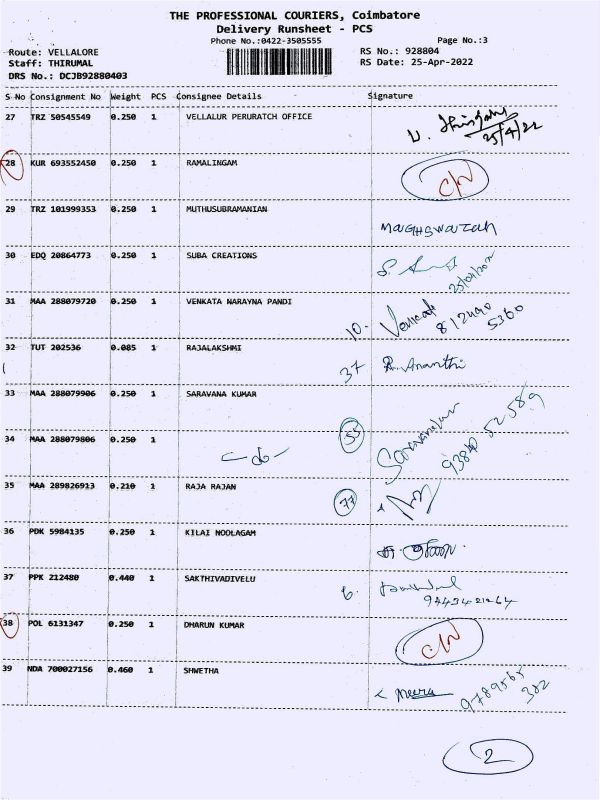 THE PROFESSIONAL COURIERS, Coimbatore
Delivery Runsheet - PCS
Phone No.:0422-3505555
Page No.:3
Route: VELLALORE
RS No.: 928804
Staff: THIRUMAL
RS Date: 25-Apr-2022
DRS No.: DCJB92880403
S No Consignment No Weight PCS Consignee Details Signature
27 TRZ 50545549 0.250 1 VELLALUR PERURATCH OFFICE
25/4/22
28 KUR 693552450 0.250 1 RAMALINGAM C/N
29 TRZ 101999353 0.250 1 MUTHUSUBRAMANIAN
30 EDQ 20864773 0.250 1 SUBA CREATIONS
31 MAA 288079720 0.250 1 VENKATA NARAYNA PANDI 10.
5360
32 TUT 202536 0.085 1 RAJALAKSHMI 37 R. Ananthi
33 MAA 288079906 0.250 1 SARAVANA KUMAR
34 MAA 288079806 0.250 1 - do - 55
35 MAA 289826913 0.210 1 RAJA RAJAN 77
36 PDK 5984135 0.250 1 KILAI NOOLAGAM
37 PPK 212480 0.440 1 SAKTHIVADIVELU 6.
38 POL 6131347 0.250 1 DHARUN KUMAR C/N
39 NDA 700027156 0.460 1 SHWETHA Meera 9789565
382
2